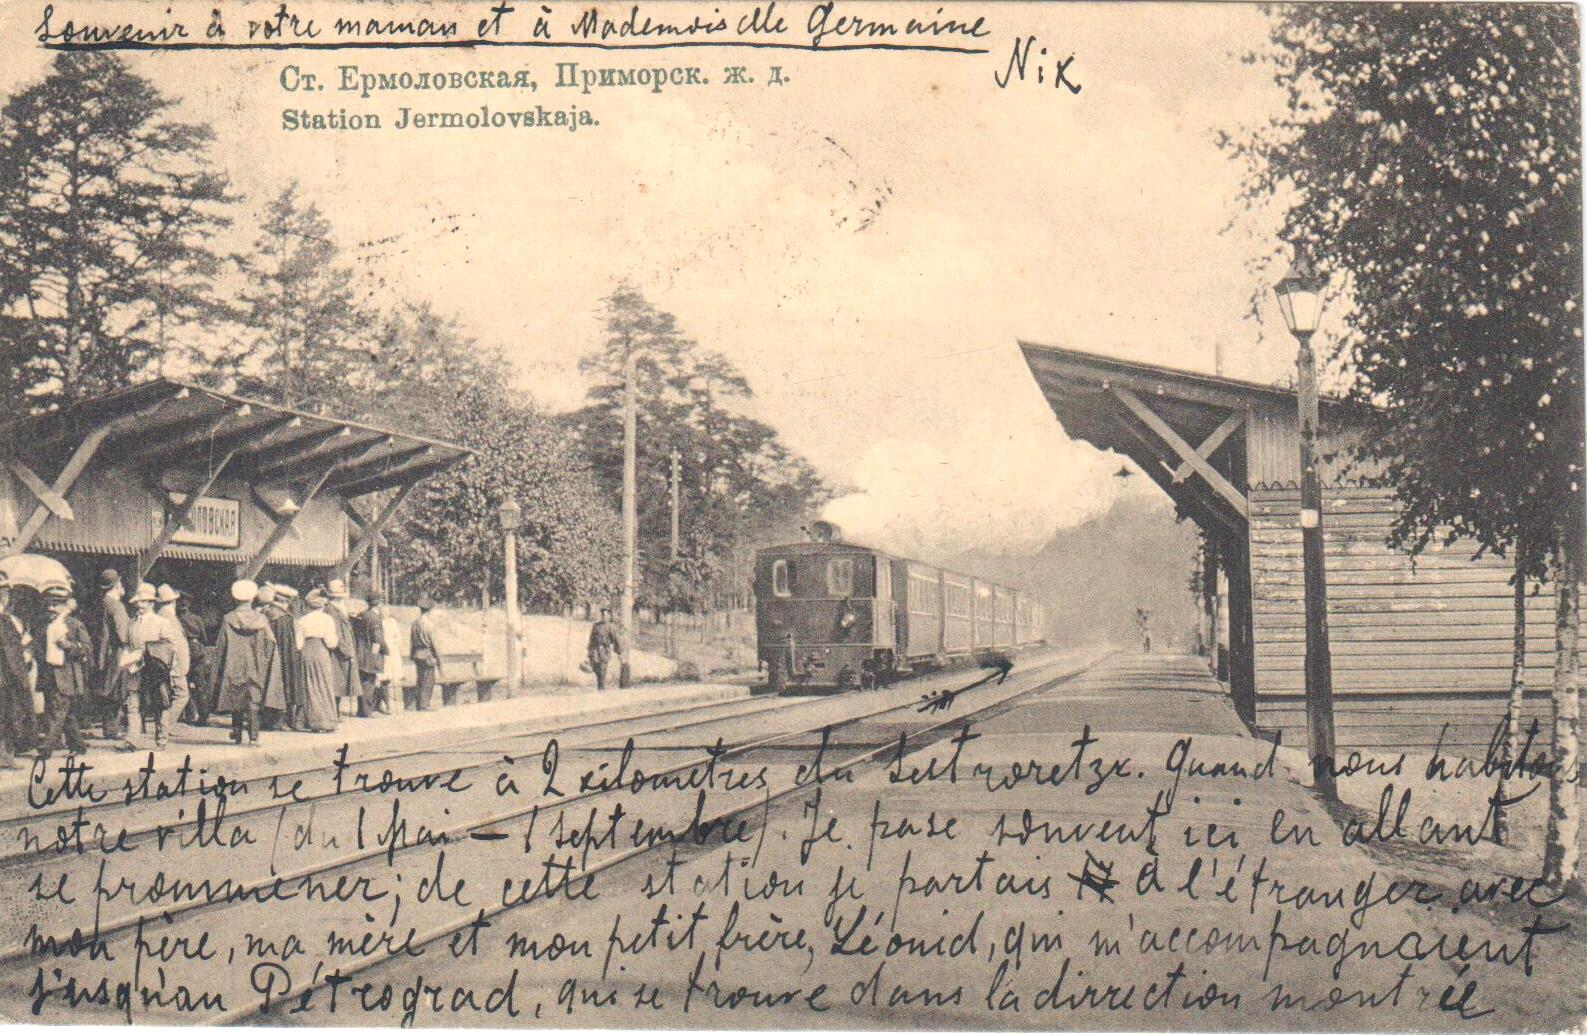 Souvenir à votre maman et à Mademoiselle Germaine
Nik
Ст. Ермоловская, Приморск. ж. д.
Station Jermolovskaja.
ловская
Cette station se trouve à 2 kilometres du Sestroretzk. Quand nous habitons
notre villa (du 1 Mai – 1 Septembre). Je passe souvent ici en allant
se prommener; de cette station je partais à l'étranger avec
mon père, ma mère et mon petit frère, Léonid, qui m'accompagnaient
jusqu'au Pétrograd, qui se trouve dans la dirrection montrée